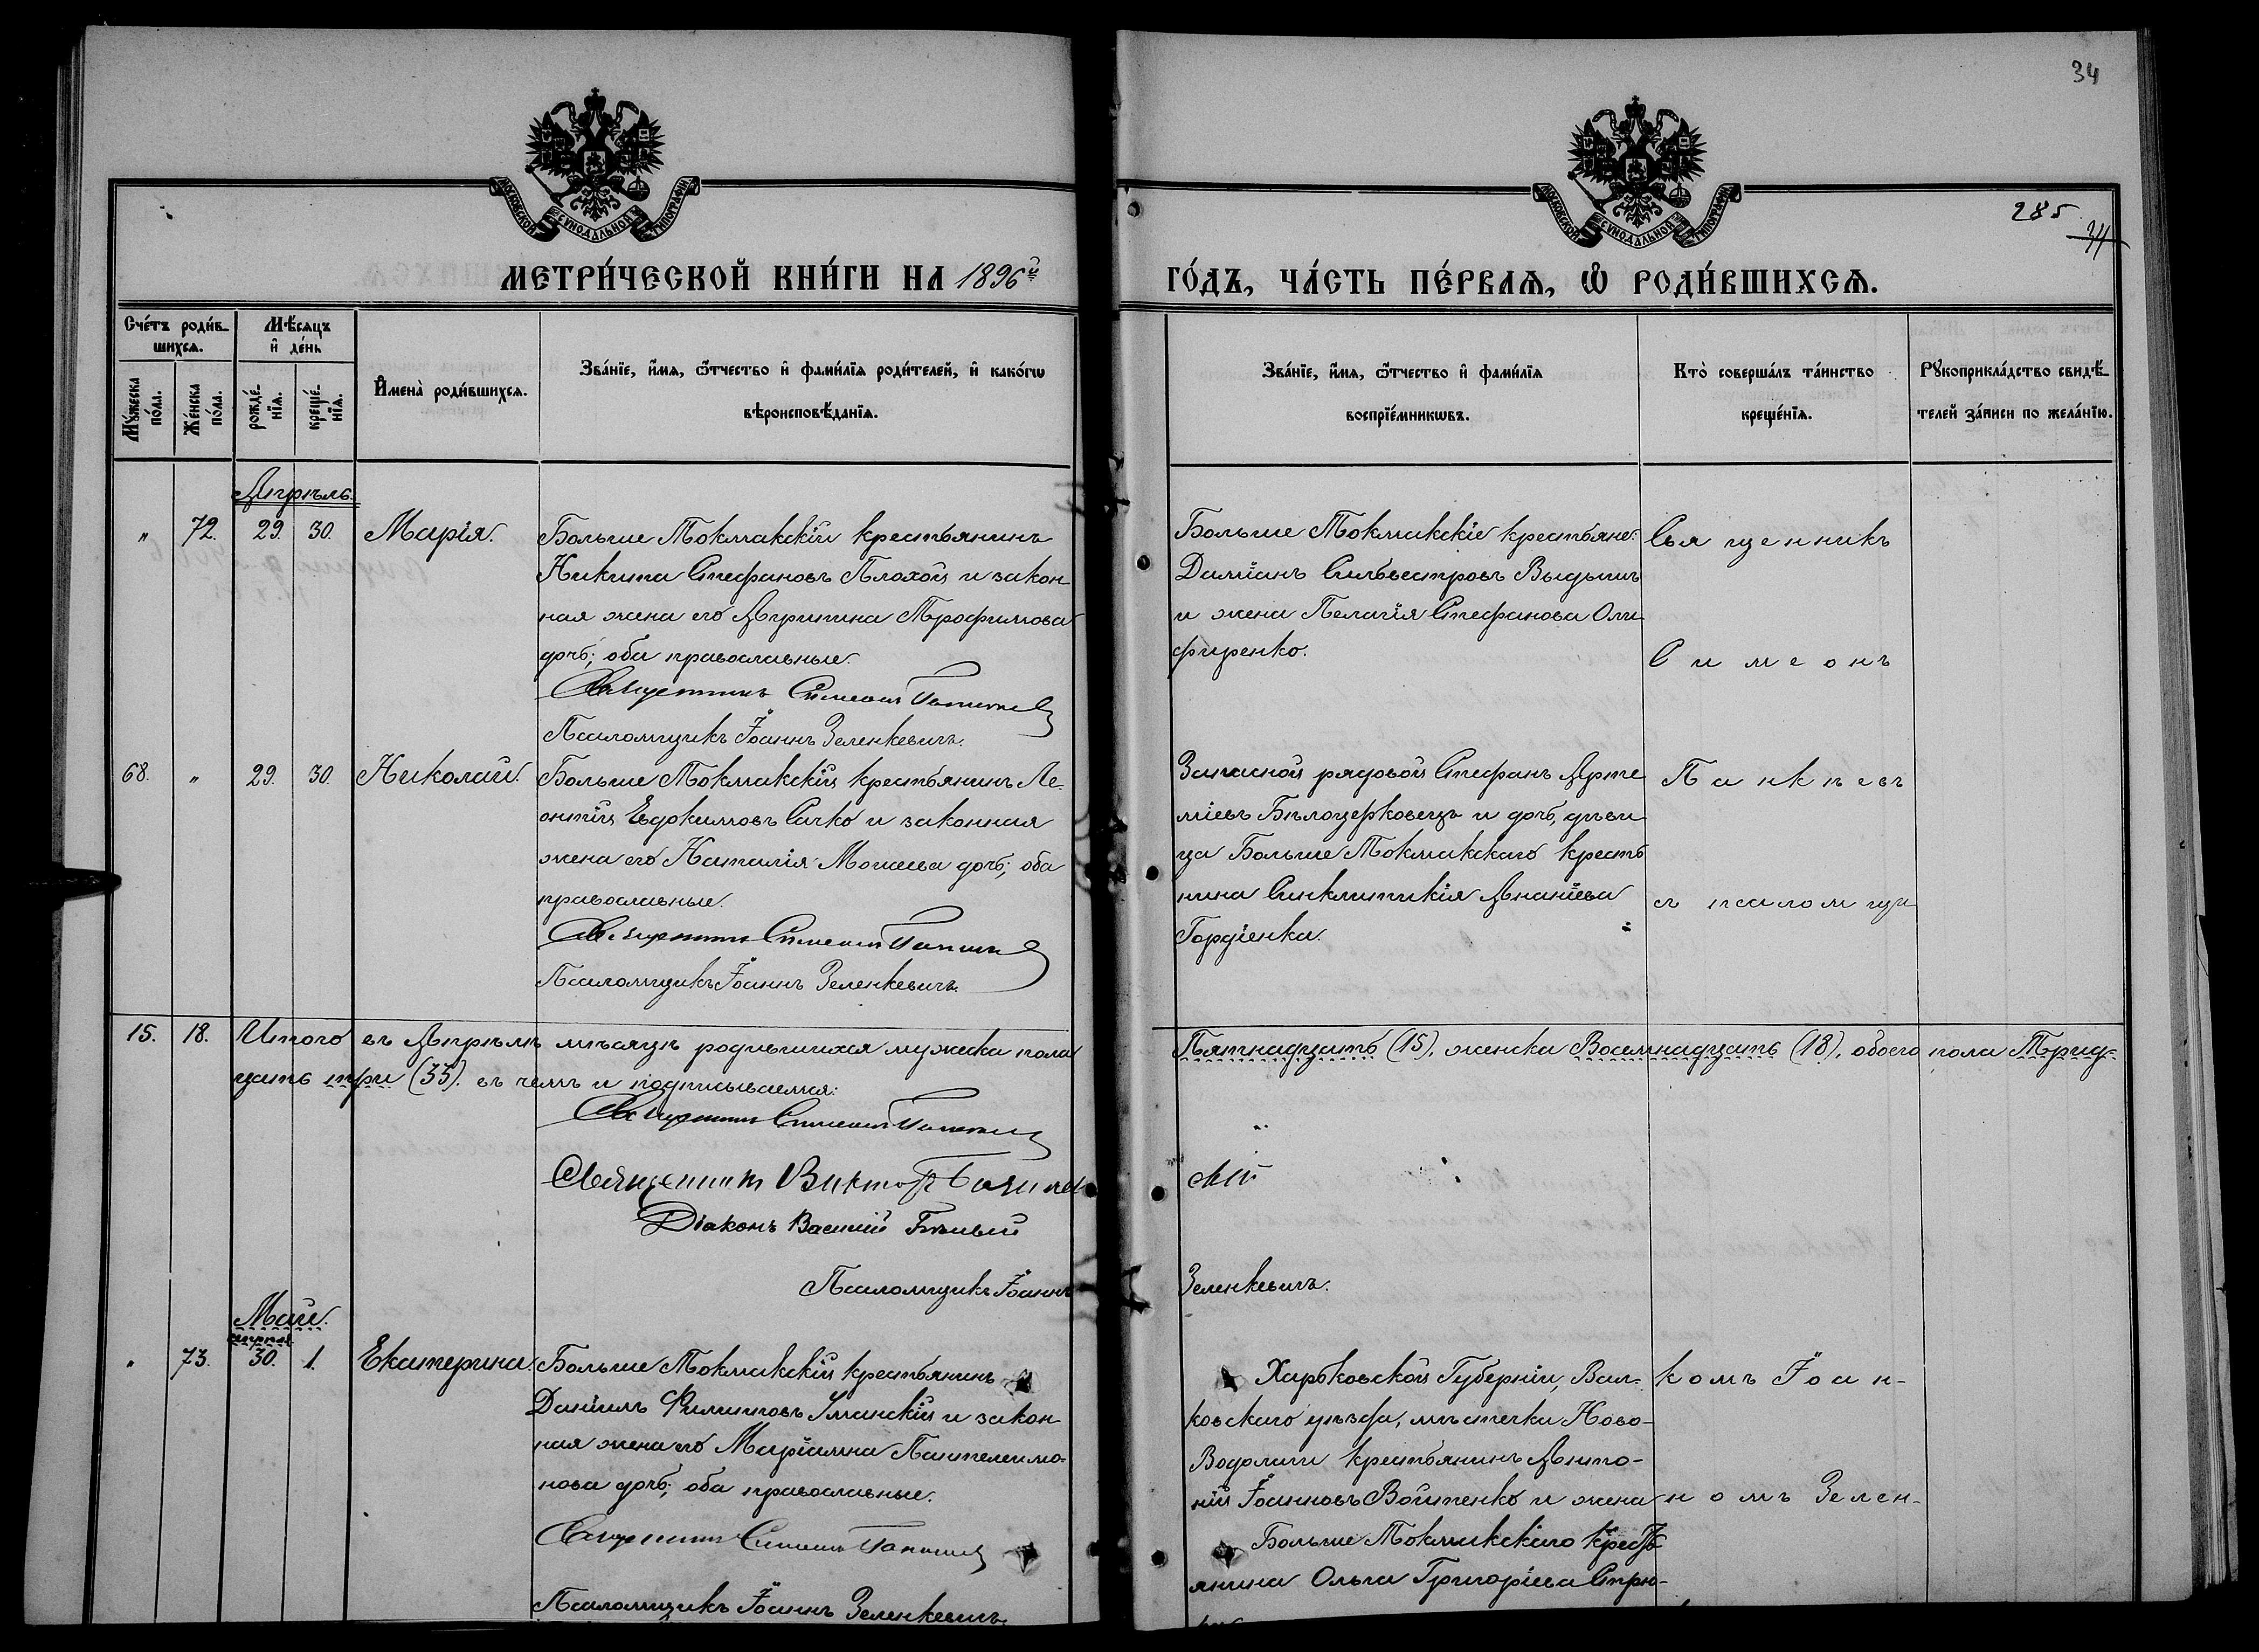 34
МОСКОВСКОЙ СѴНОДАЛЬНОЙ ТИПОГРАФІИ
МОСКОВСКОЙ СѴНОДАЛЬНОЙ ТИПОГРАФІИ
285
34
МЕТРИ́ЧЕСКОЙ КНИ́ГИ НА 1896й
ГО́ДЪ, ЧА́СТЬ ПЕ́РВАѦ, Ѽ РОДИ́ВШИХСѦ.
Сче́тъ роди́в-
шихсѧ.
Мѣ́сяцъ
и҆ де́нь
Мꙋ́жеска
по́ла.
Же́нска
по́ла.
рожде́-
нїѧ.
креще́-
нїѧ.
И҆мена̀ роди́вшихсѧ.
Зва́нїе, и҆́мѧ, ѻ҆́тчество и҆ фами́лїѧ роди́телей, и҆ како́гѡ
вѣроисповѣ́данїѧ.
Зва́нїе, и҆́мѧ, ѻ҆́тчество и҆ фами́лїѧ
воспрїе́мникѡвъ.
Кто̀ соверша́лъ та́инство
креще́нїѧ.
Рꙋкоприкла́дство свидѣ́-
телей за́писи по жела́нїю.
Апрѣль.
" 72. 29. 30. Марія.
Больше Токмакскій крестьянинъ
Никита Стефановъ Плохой и закон
ная жена его Агрипина Трофимова
дочь; оба православные.
Священникъ Симеонъ Панкѣев
Псаломщикъ Іоаннъ Зеленкевичъ.
Больше Токмакскіе крестьяне:
Даміанъ Сильвестровъ
и жена Пелагія Стефанова Оли
фиренко.
Священникъ
Симеонъ
68. " 29. 30. Николай.
Больше Токмакскій крестьянинъ Ле-
онтій Евдокимовъ Сачко и законная
жена его Наталія Моисеева дочь; оба
православные.
Священникъ Симеонъ Панкѣев
Псаломщикъ Іоаннъ Зеленкевичъ.
Запасной рядовой Стефанъ Арте
міевъ Бѣлоцерковецъ и дочь, дѣви
ца Больше Токмакскаго кресть
нина Синклитикія Ананіева
Гордіенка.
Панкѣевъ
съ псаломщи
15. 18. Итого въ Апрѣлѣ мѣсяцѣ родившихся мужеска пола Пятнадцать (15), женска Восемнадцать (18), обоего пола Трид-
цать три (33). въ чемъ и подписываемся:
Священникъ Симеонъ Панкѣев
Священникъ Викторъ
Діаконъ Василій
Псаломщикъ Іоаннъ Зеленкевичъ.
Май.
апрѣля
" 73. 30. 1. Екатерина.
Больше Токмакскій крестьянинъ
Даніилъ Филипповъ Уманскій и закон
ная жена его Маріамна Пантелеимо-
нова дочь; оба православные.
Священникъ Симеонъ Панкѣев
Псаломщикъ Іоаннъ Зеленкевичъ.
Харьковской Губерніи, Вал-
ковскаго уѣзда, мѣстечка Ново-
Водолаги крестьянинъ Анто-
ній Іоанновъ Войтенко и жена
Больше Токмакскаго крестъ
янина Ольга Григоріева Стрю-
комъ Іоан-
номъ Зелен-